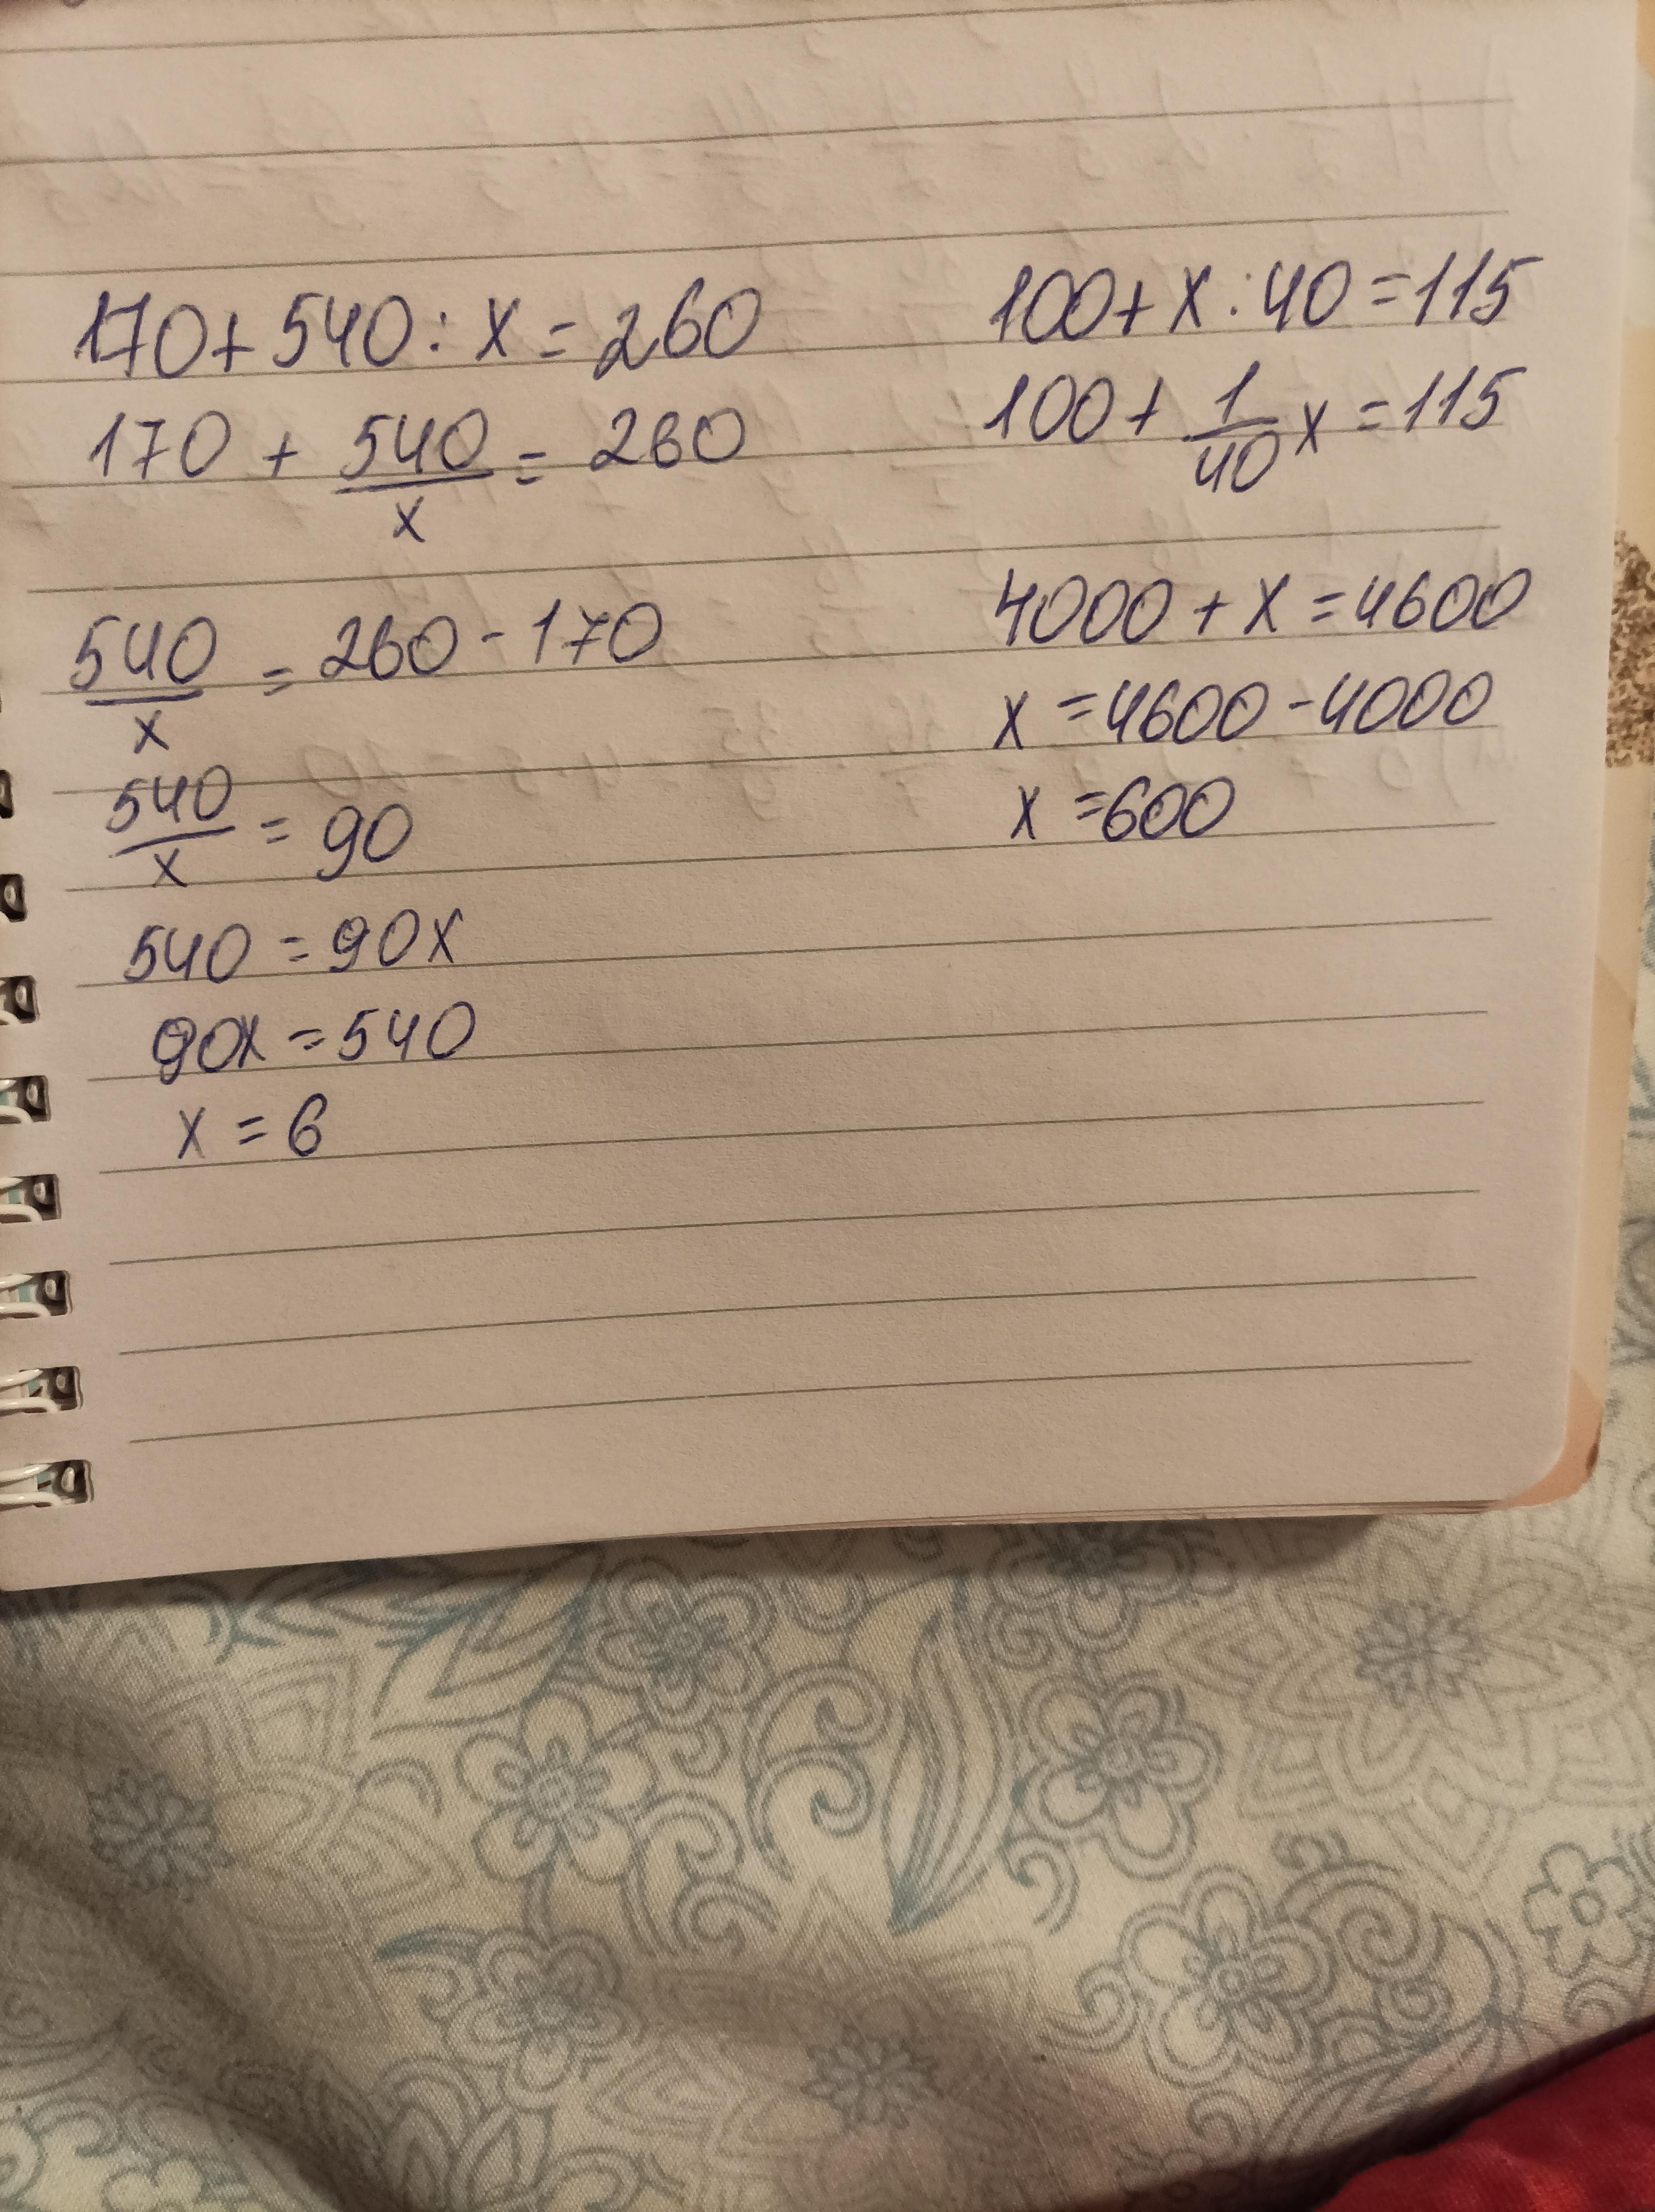 170+540:x=260
170 + 540/x = 260
540/x = 260-170
540/x = 90
540=90x
90x=540
x=6
100+x:40=115
100+1/40x=115
4000+x=4600
x=4600-4000
x=600